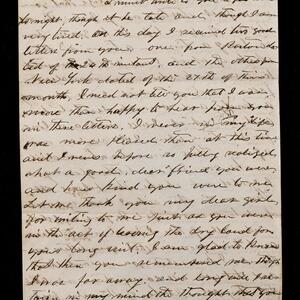 I must write to you a few
to night, though it be late and though I am
very tired. On this day I received two good
letters from you, one from Boston da-
ted of the 24th instant, and the other from
New York dated of the 27th of this
month, I need not tell you that I was
more than happy to hear from you
in these letters, I never in my life
was more pleased than at this time
and I never before so fully realized
what a good, dear friend you were
and how kind you were to me
Let me thank you my dear girl
for writing to me just as you were
in the act of leaving the dry land for
your long visit. I am glad to know
that then you remembered me, though
I was far away and long will
in my mind the thought that you